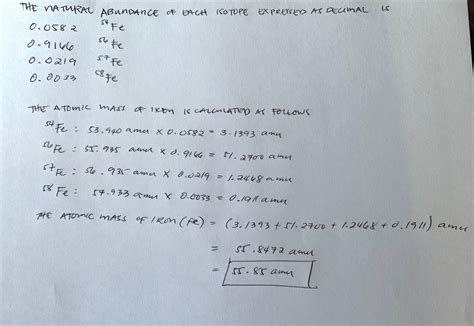 THE NATURAL ABUNDANCE OF EACH ISOTOPE EXPRESSED AS DECIMAL IS
0.0582 ⁵⁴Fe
0.9166 ⁵⁶Fe
0.0219 ⁵⁷Fe
0.0033 ⁵⁸Fe
THE ATOMIC MASS OF IRON IS CALCULATED AS FOLLOWS
⁵⁴Fe : 53.940 amu x 0.0582 = 3.1393 amu
⁵⁶Fe : 55.935 amu x 0.9166 = 51.2700 amu
⁵⁷Fe : 56.935 amu x 0.0219 = 1.2468 amu
⁵⁸Fe : 57.933 amu x 0.0033 = 0.1911 amu
THE ATOMIC MASS OF IRON (Fe) = (3.1393 + 51.2700 + 1.2468 + 0.1911) amu
= 55.8472 amu
= 55.85 amu